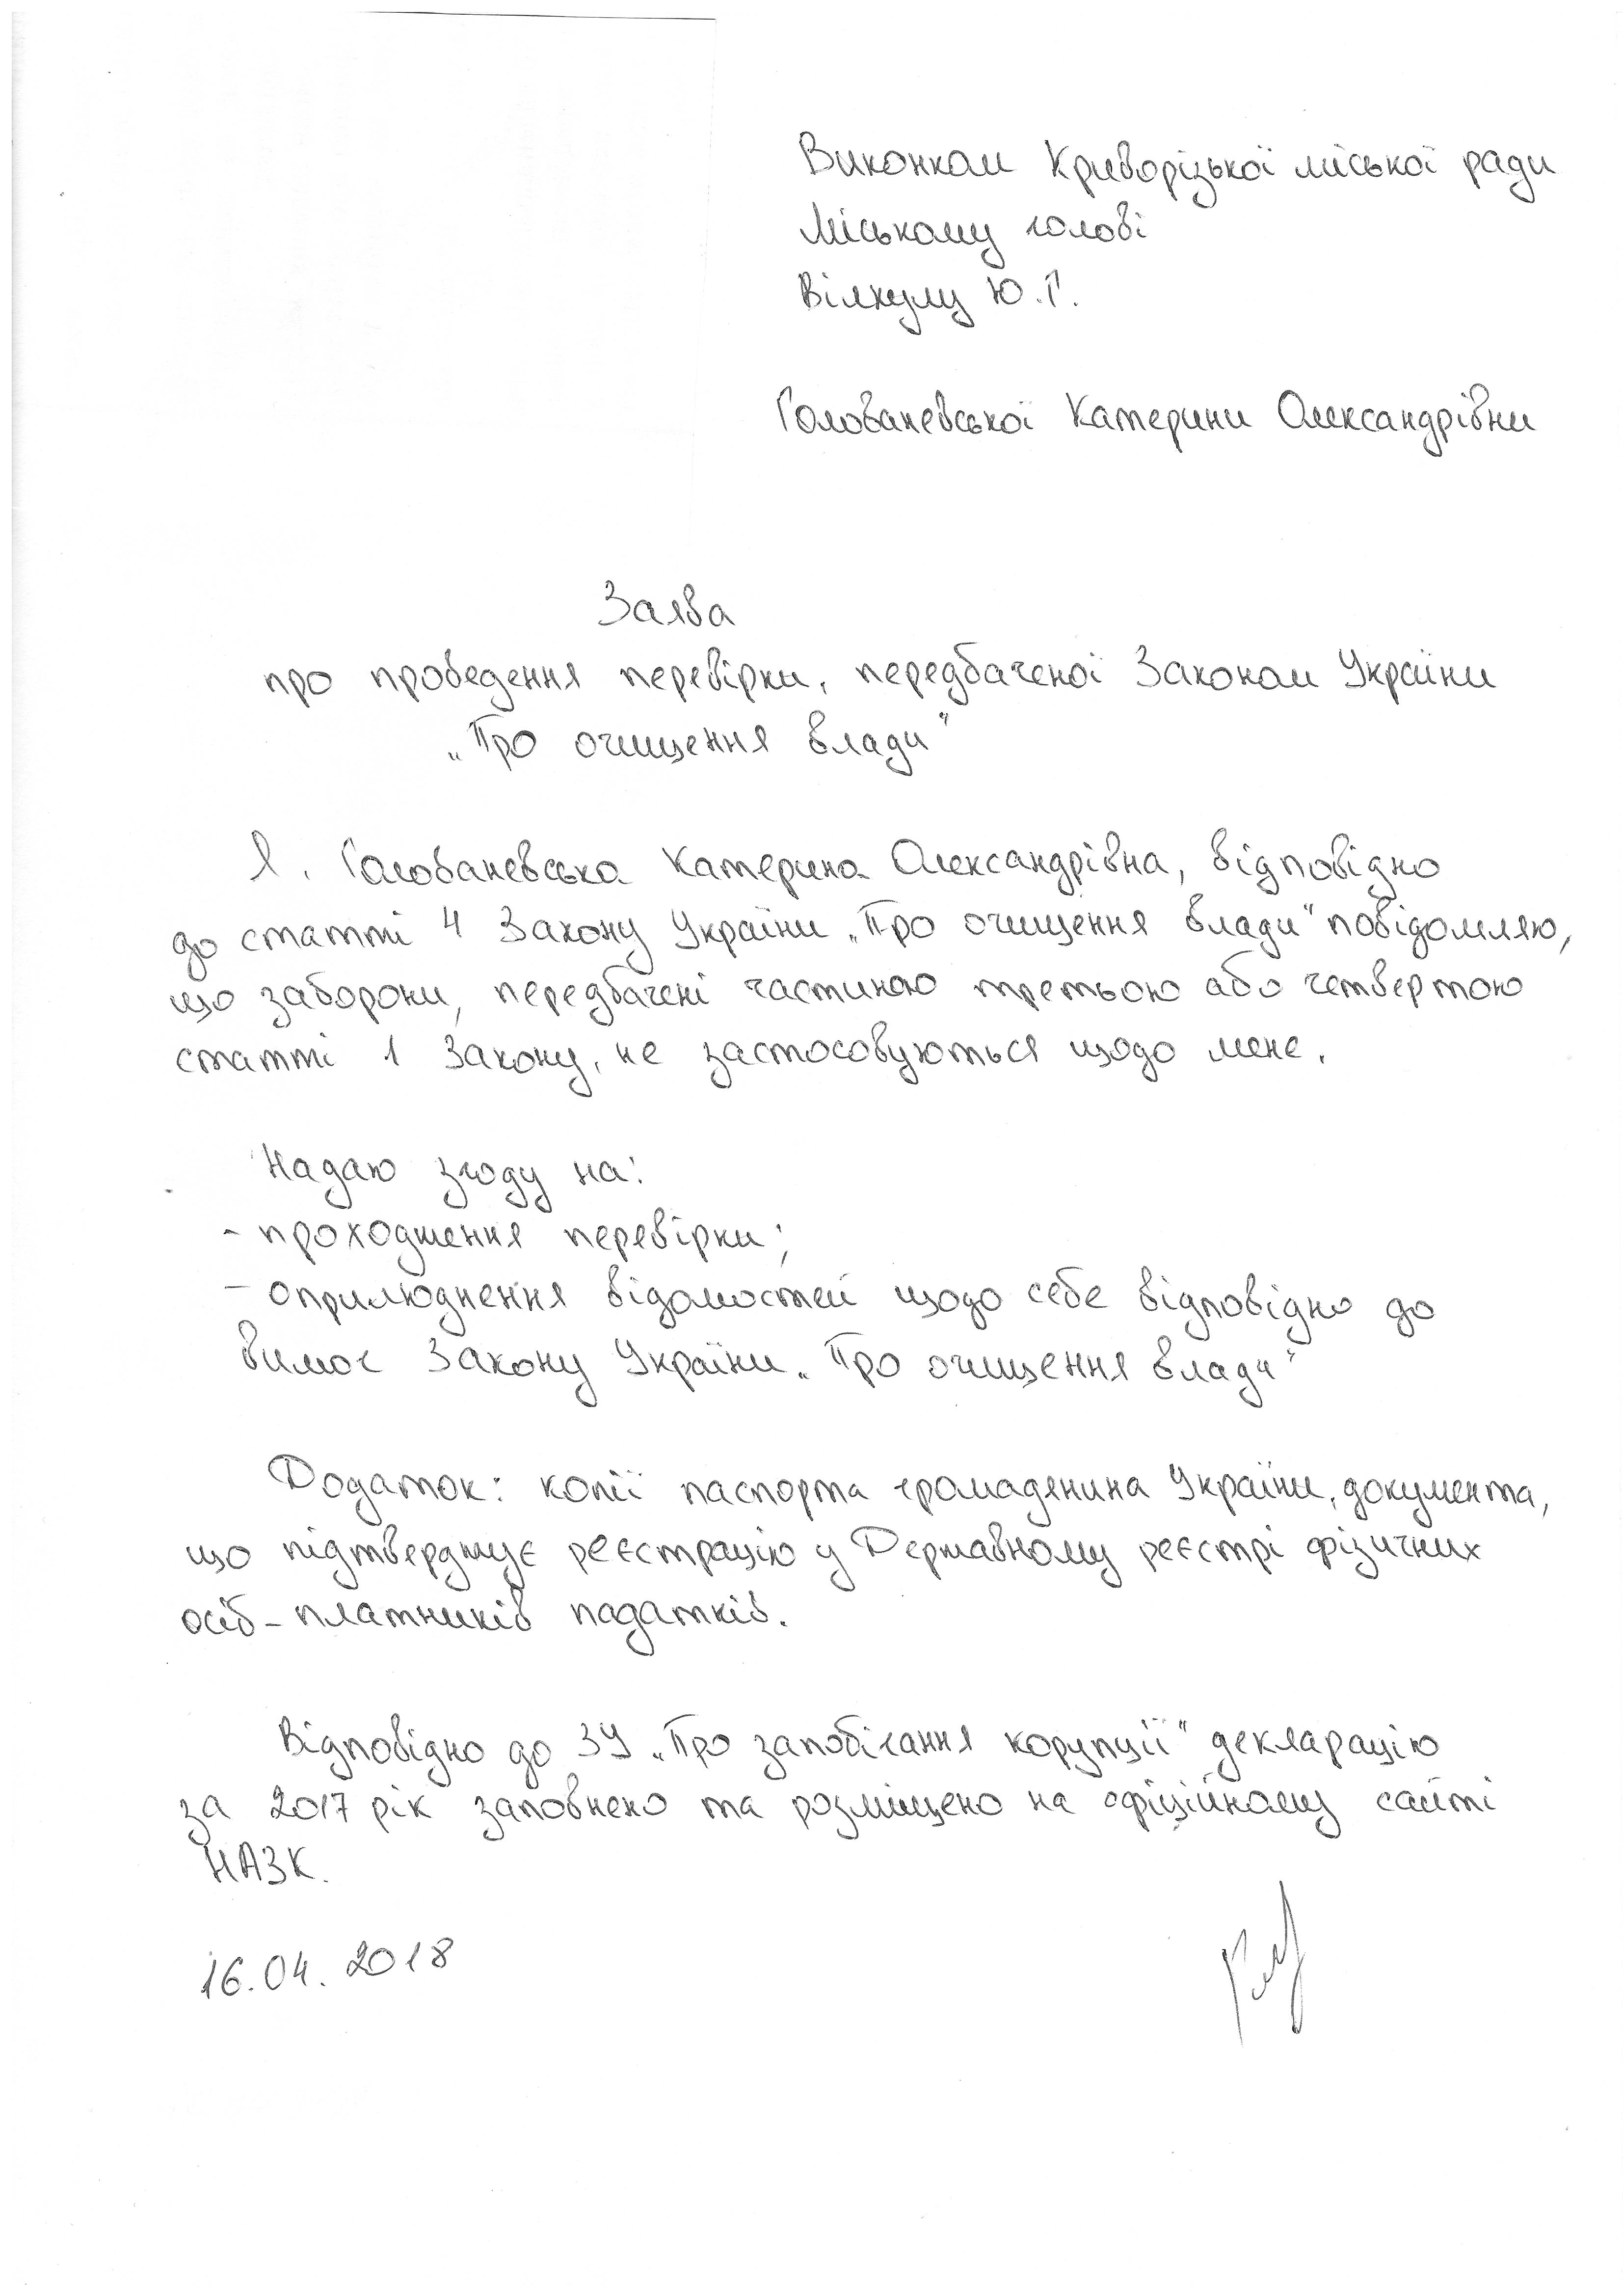 Виконком Криворізької міської ради
Міському голові
Вілкулу Ю.Г.
Голованевської Катерини Олександрівни
Заява
про проведення перевірки, передбаченої Законом України
„Про очищення влади"
Я, Голованевська Катерина Олександрівна, відповідно
до статті 4 Закону України „Про очищення влади" повідомляю,
що заборони, передбачені частиною третьою або четвертою
статті 1 Закону, не застосовуються щодо мене.
Надаю згоду на:
- проходження перевірки;
- оприлюднення відомостей щодо себе відповідно до
вимог Закону України „Про очищення влади"
Додаток: копії паспорта громадянина України, документа,
що підтверджує реєстрацію у Державному реєстрі фізичних
осіб-платників податків.
Відповідно до ЗУ „Про запобігання корупції" декларацію
за 2017 рік заповнено та розміщено на офіційному сайті
НАЗК.
16.04.2018